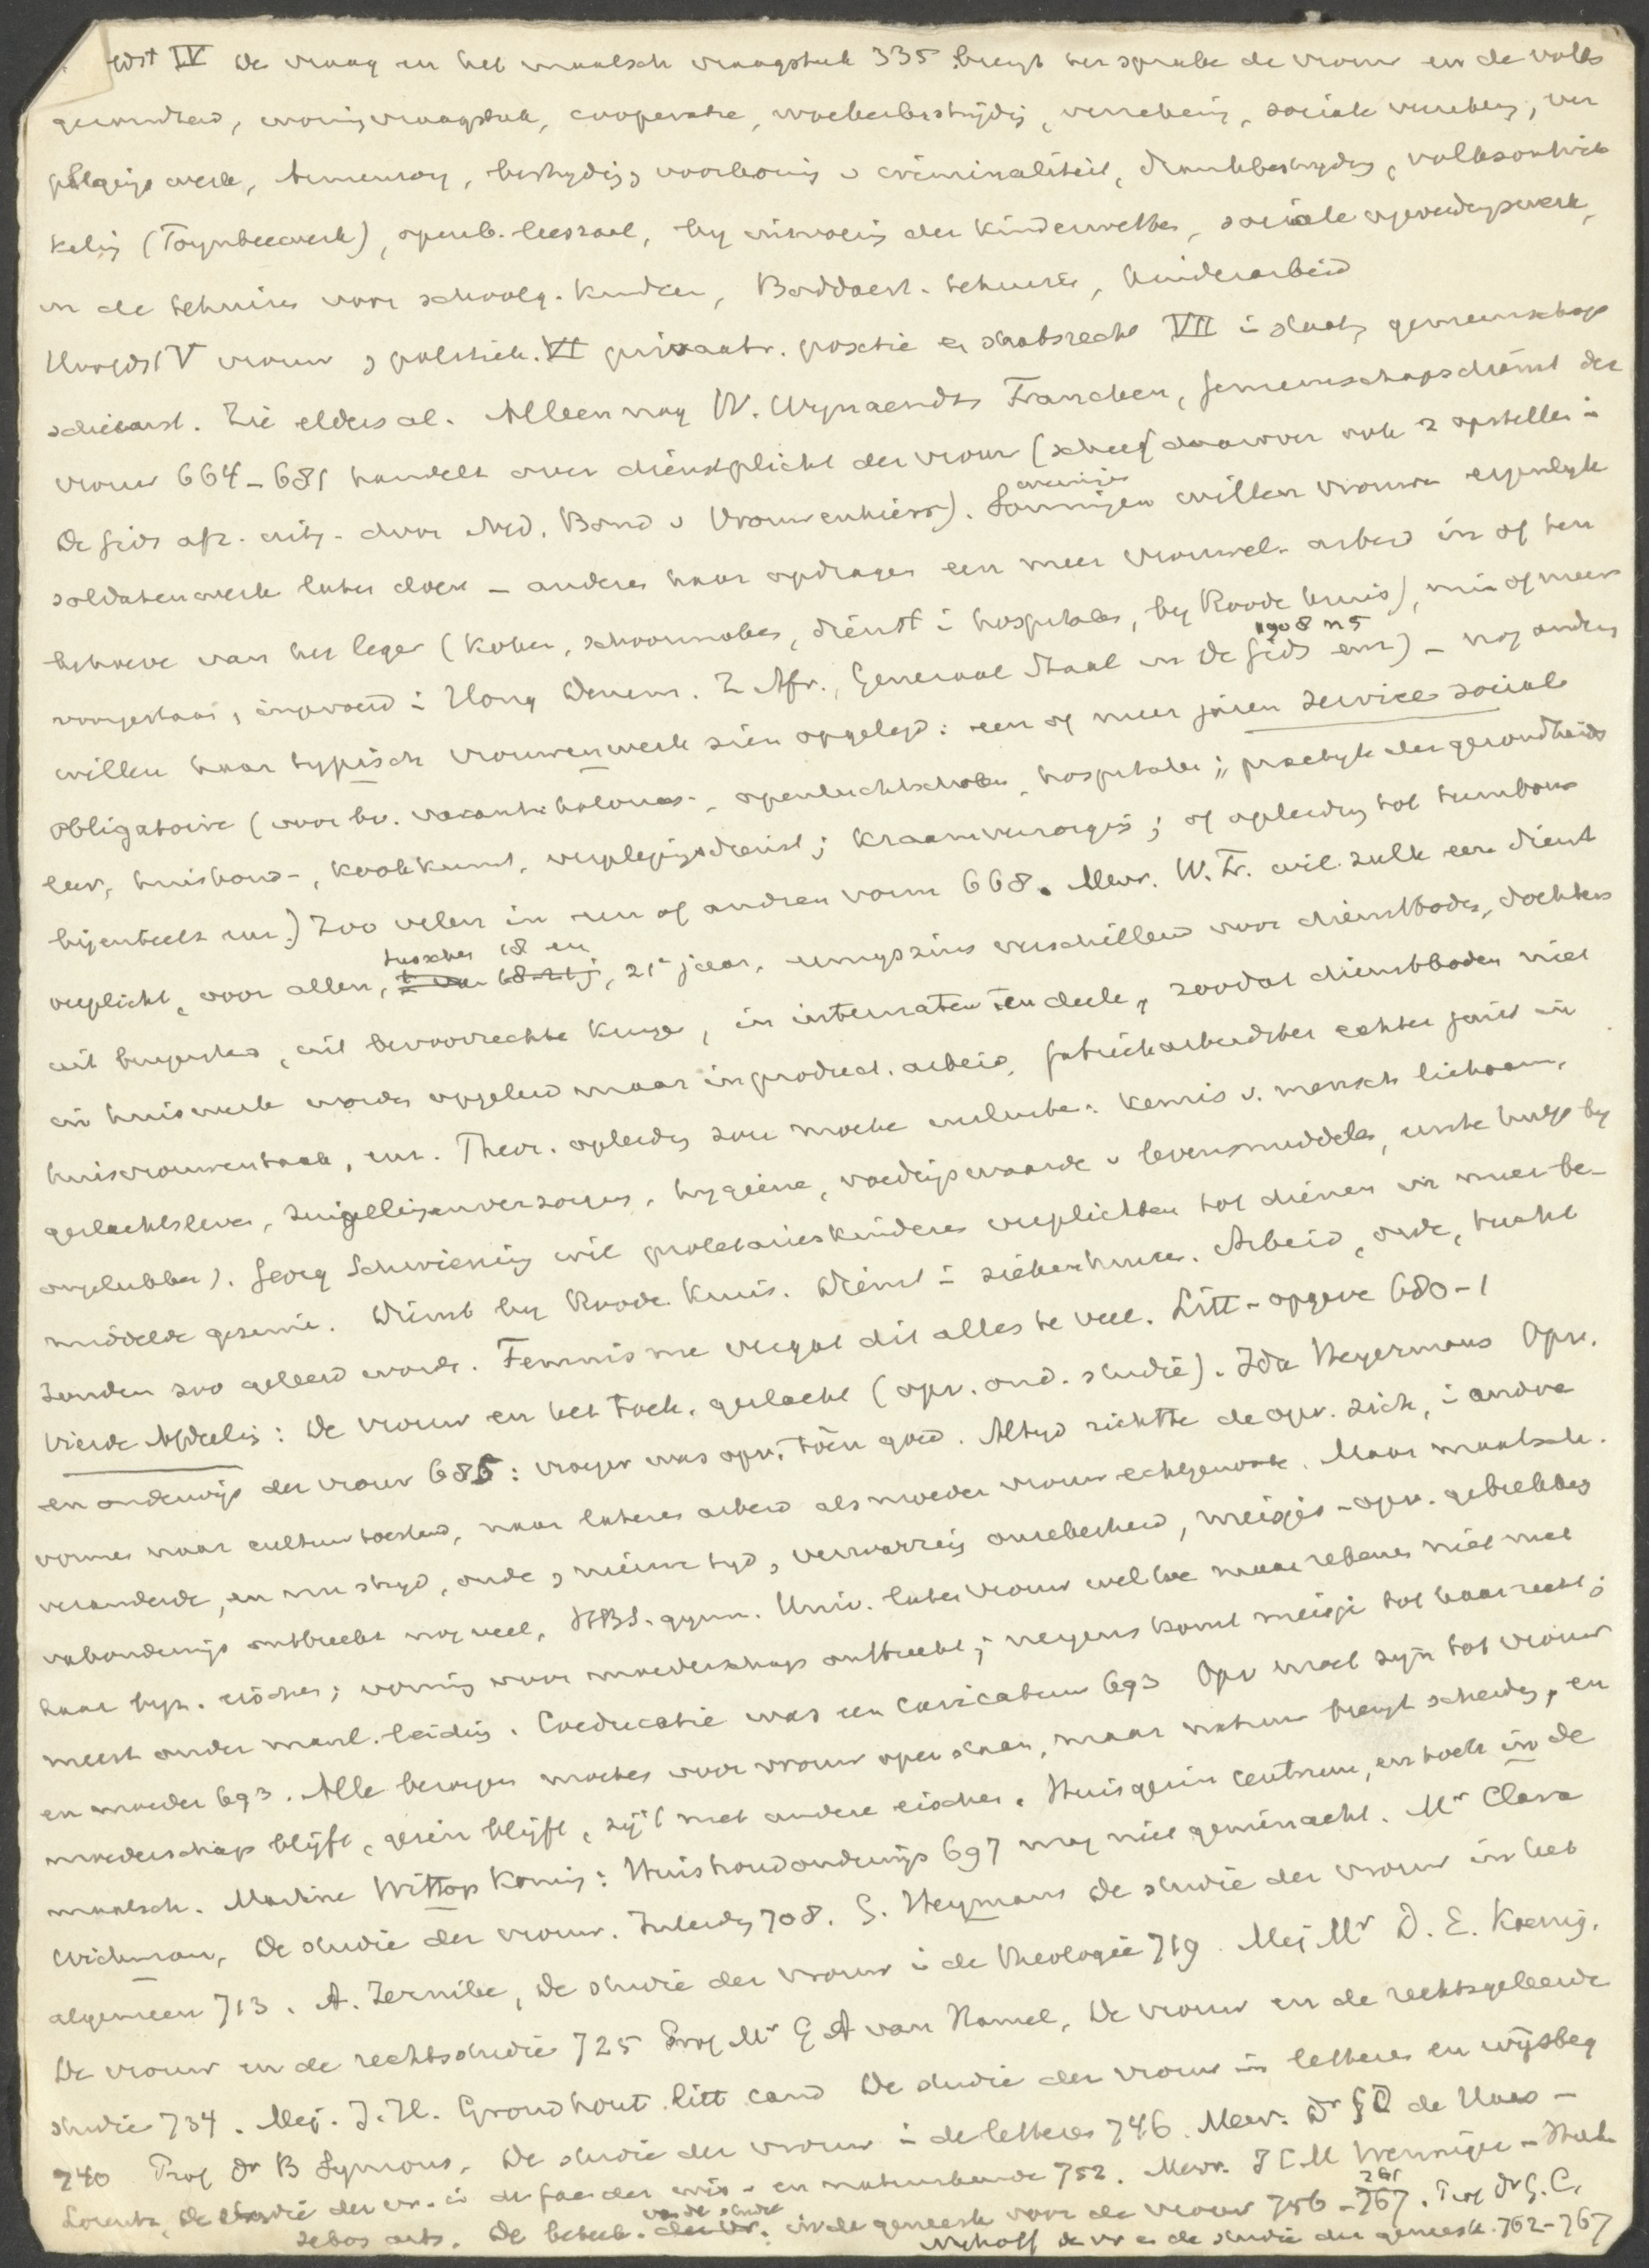 Hdst IV De vrouw en het maatsch vraagstuk 335 brengt ter sprake de vrouw en de volks
gezondheid, woningvraagstuk, cooperatie, woekerbestrijding, verzekering, sociale verzekering, ver
plegings werk, Armenzorg, bestrijding, voorkoming v criminaliteit, drankbestrijding, volksontwik
keling (Toynbeewerk), openb. leeszaal, by uitvoering der Kinderwetten, sociale opvoedingswerk,
in de tehuizen voor schoolg. kinderen, Boddaert-tehuizen, kinderarbeid
Hoofdst V vrouw politiek. VI privaatr. positie en staatsrecht VII in staats gemeenschap
. Zie elders al. Alleen nog W. Wynaendts Francken, Gemeenschapsdienst der
vrouw 664-681 handelt over dienstplicht der vrouw (schreef daarover ook 2 opstellen in
De Gids afz. uitg. door Ned. Bond v Vrouwenkiesr). Sommigen weinigen willen vrouwen eigenlyk
soldatenwerk laten doen - anderen haar opdragen een meer vrouwel. arbeid in of ten
behoeve van het leger (koken, schoonmaken, dienst in hospitalen, by Roode Kruis), min of meer
voorgestaan, ingevoerd in Hong. Denem. Z Afr., Generaal Staal in De Gids 1908 n 5 enz) - nog anderen
willen haar typisch vrouwenwerk zien opgelegd: een of meer jaren service sociale
obligatoire (voor bv. vacantiekolonies, openluchtscholen, hospitalen; practijk der gezondheids
leer, huishoud-, kookkunst, verplegingsdienst; kraamverzorging; of opleiding tot tuinbouw
bijenteelt enz.) Zoo velen in een of anderen vorm 668. Mevr. W. Fr. wil zulk een dienst
verplicht, voor allen, tusschen 18 en 21e jaar, eenigszins verschillend voor dienstboden, dochters
uit burgerstand, uit bevoorrechte kringen, in internaten ten deele, zoodat dienstboden niet
in huiswerk worden opgeleid maar in product. arbeid, fabrieksarbeidster echter juist in
huisvrouwentaak, enz. Theor. opleiding zou moeten insluiten: kennis v. mensch lichaam,
geslachtsleven, zuigelingenverzorging, hygiene, voedingswaarde v levensmiddelen, eerste hulp by
ongelukken). Georg Schwiening wil proletarierskinderen verplichten tot dienen in meer be-
middelde gezinnen. Dienst by Roode Kruis. Dienst in ziekenhuizen. Arbeid, orde, tucht
zouden zoo geleerd worden. Feminisme vergat dit alles te veel. Litt-opgave 680-1
Vierde Afdeeling: De vrouw en het toek. geslacht (opv. ond. studie). Ida Heyermans Opv.
en onderwijs der vrouw 685: vroeger was opv. toen goed. Altyd richtte de opv. zich, in andre
vormen naar cultuurtoestand, naar lateren arbeid als moeder vrouw echtgenoote. Maar maatsch.
veranderde, en nu stryd, oude, nieuwe tyd, verwarring onzekerheid, meisjes-opv. gebrekkig
vakonderwijs ontbreekt nog veel, HBS. gymn. Univ. laten vrouw wel toe maar rekenen niet met
haar byz. eischen; vorming voor moederschap ontbreekt; nergens komt meisje tot haar recht;
meest onder manl. leiding. Coeducatie was een caricatuur 693 Opv moet zijn tot vrouw
en moeder 693. Alle beroepen moeten voor vrouw open staan, maar natuur brengt scheiding, en
moederschap blijft, gezin blijft, zij 't met andere eischen. Huisgezin centrum, en toch in de
maatsch. Martine Wittop Koning: Huishoudonderwijs 697 mag niet geminacht. Mr Clara
Wichmann, De studie der vrouw. Inleiding 708. G. Heymans De studie der vrouw in het
algemeen 713. A. Zernike, De studie der vrouw in de theologie 719. Mej Mr D. E. Koenig.
De vrouw en de rechtsstudie 725 Prof Mr G A van Hamel, De vrouw en de rechtsgeleerde
studie 734. Mej. J. H. Grondhout litt cand De studie der vrouw in letteren en wijsbeg
740 Prof Dr B Symons, De studie der vrouw in de letteren 746. Mevr. Dr G L de Haas-
Lorentz, De studie der vr. in de fac der wis- en natuurkunde 752. Mevr. J C M
arts. De beteek. van de studie in de geneesk voor de vrouw 756-761. Prof Dr G. C.
Nyhoff De vr en de studie der geneesk. 762-767